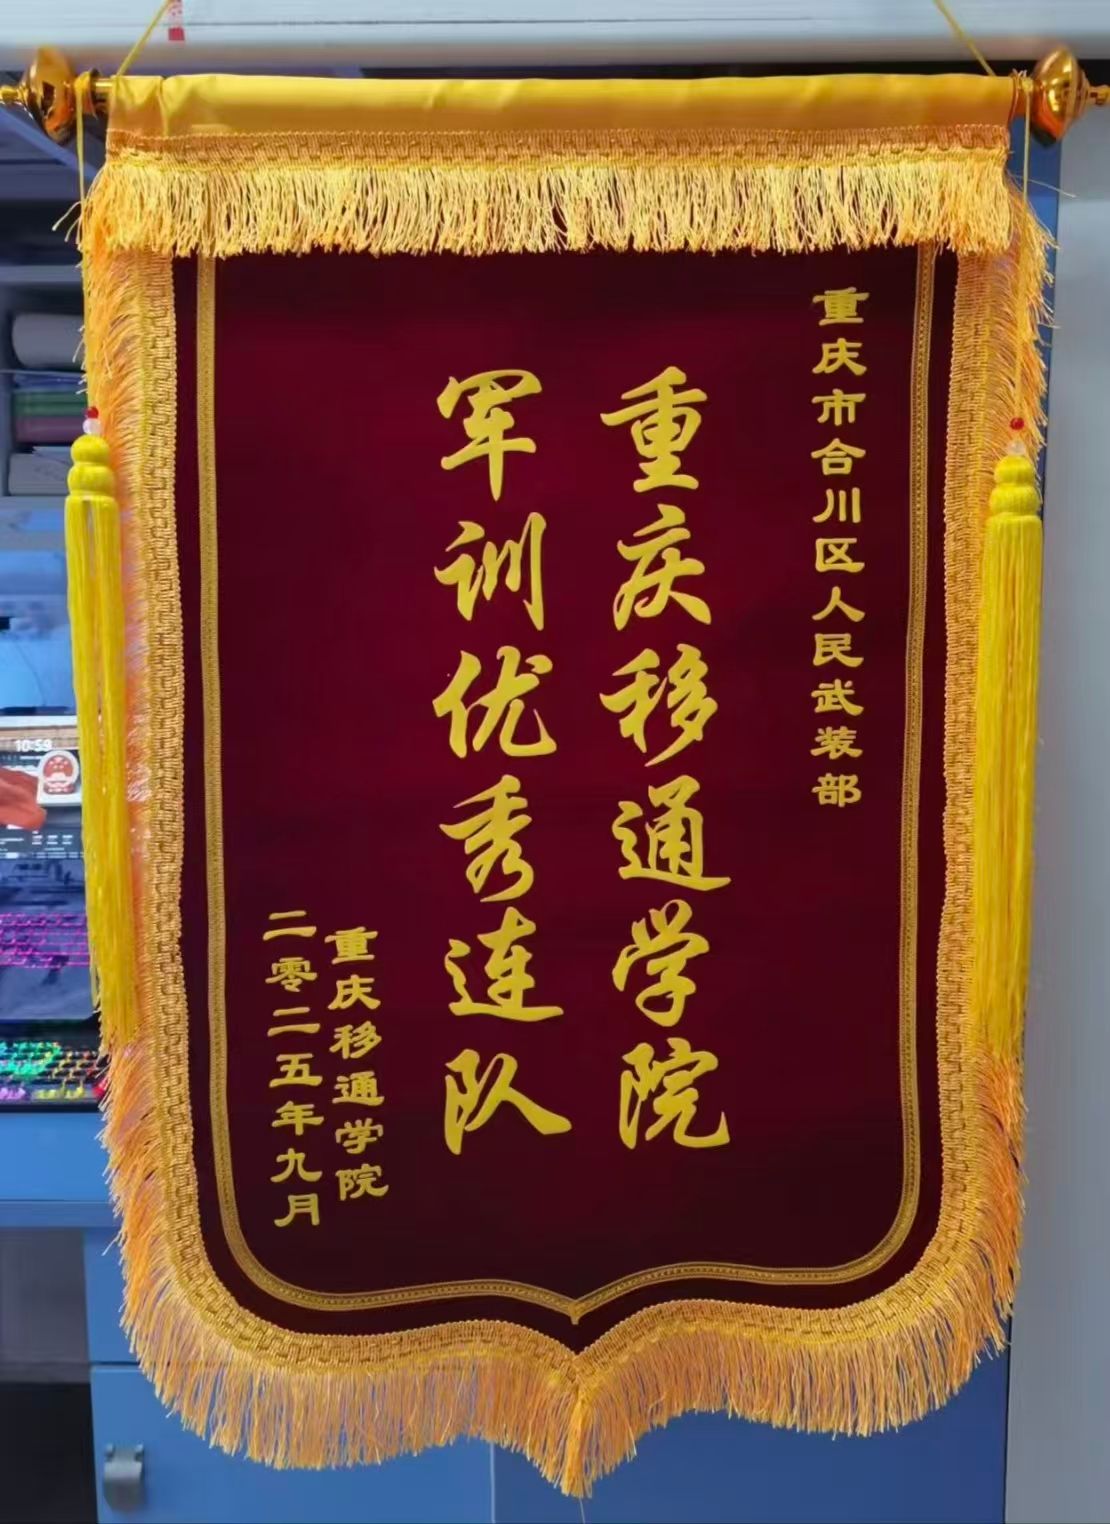 重庆市合川区人民武装部
重庆移通学院
军训优秀连队
重庆移通学院
二零二五年九月
10:59